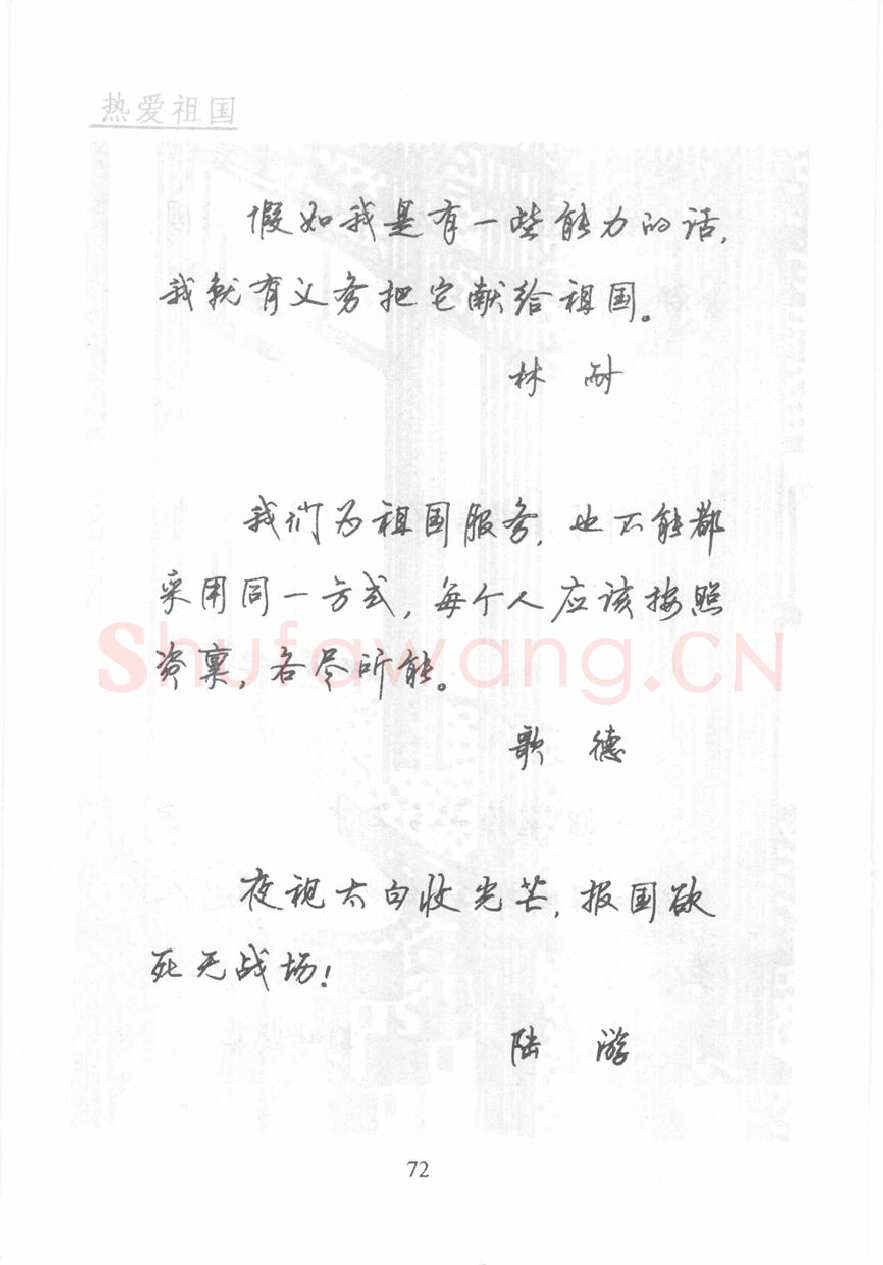 热爱祖国
假如我是有一些能力的话,
我就有义务把它献给祖国。
林耐
我们为祖国服务,也不能都
采用同一方式,每个人应该按照
资禀,各尽所能。
Shufawang.CN
歌德
夜视太白收光芒,报国欲
死无战场!
陆游
72